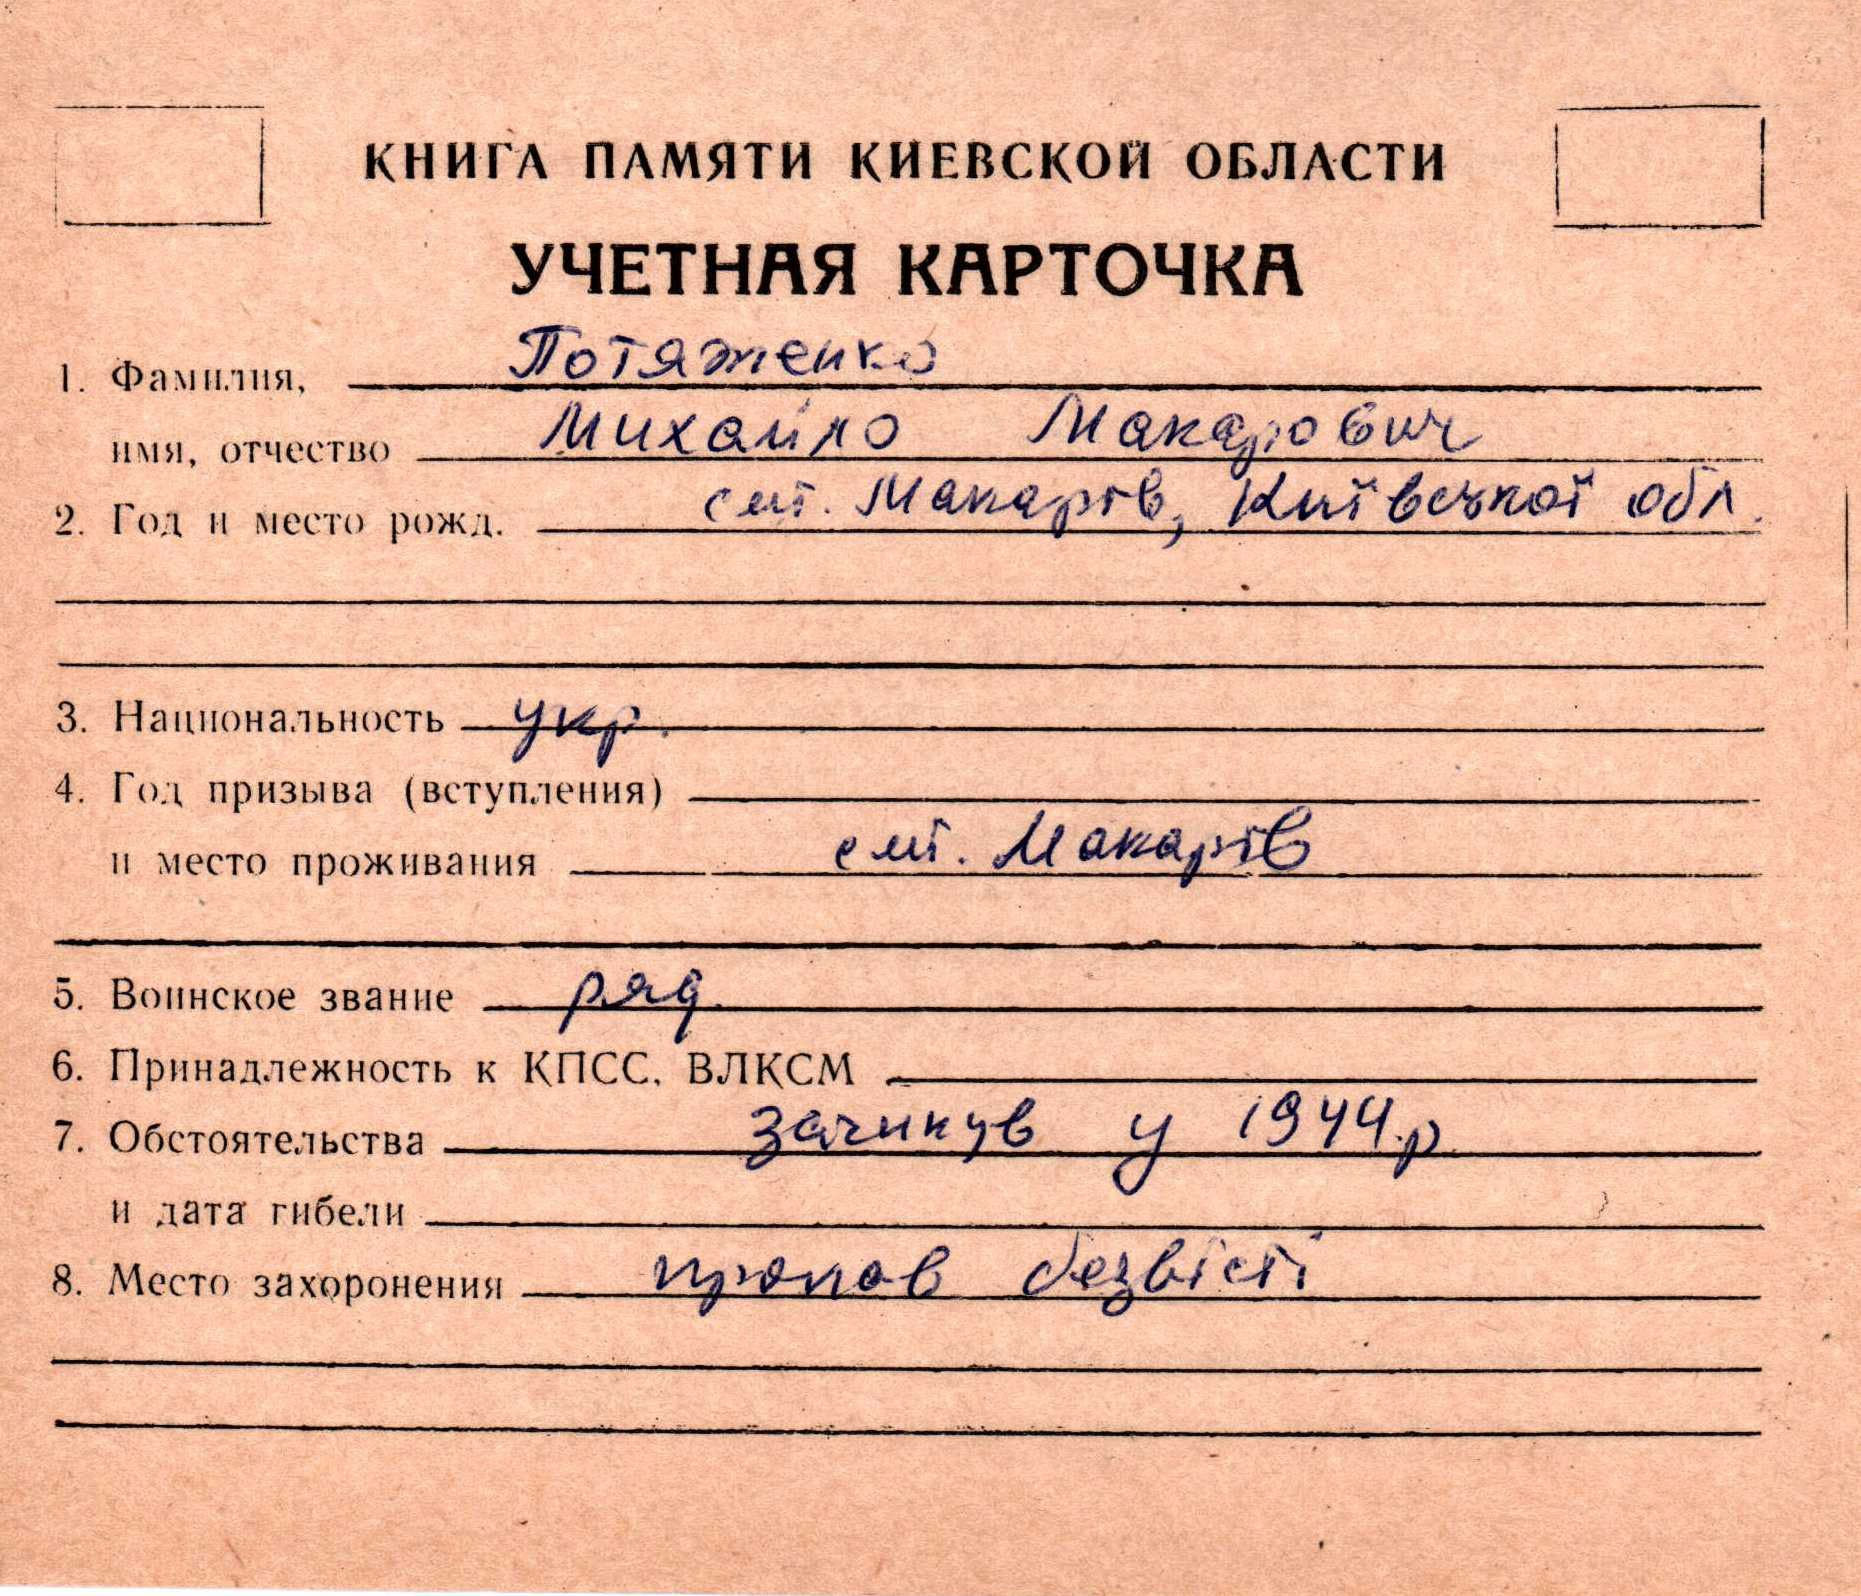 КНИГА ПАМЯТИ КИЕВСКОЙ ОБЛАСТИ
УЧЕТНАЯ КАРТОЧКА
1. Фамилия, Потяженко
имя, отчество Михайло Макарович
2. Год и место рожд. смт. Макарів, Київської обл.
3. Национальность укр.
4. Год призыва (вступления)
и место проживания смт. Макарів
5. Воинское звание ряд.
6. Принадлежность к КПСС, ВЛКСМ
7. Обстоятельства загинув у 1944 р.
и дата гибели
8. Место захоронения пропав безвісті